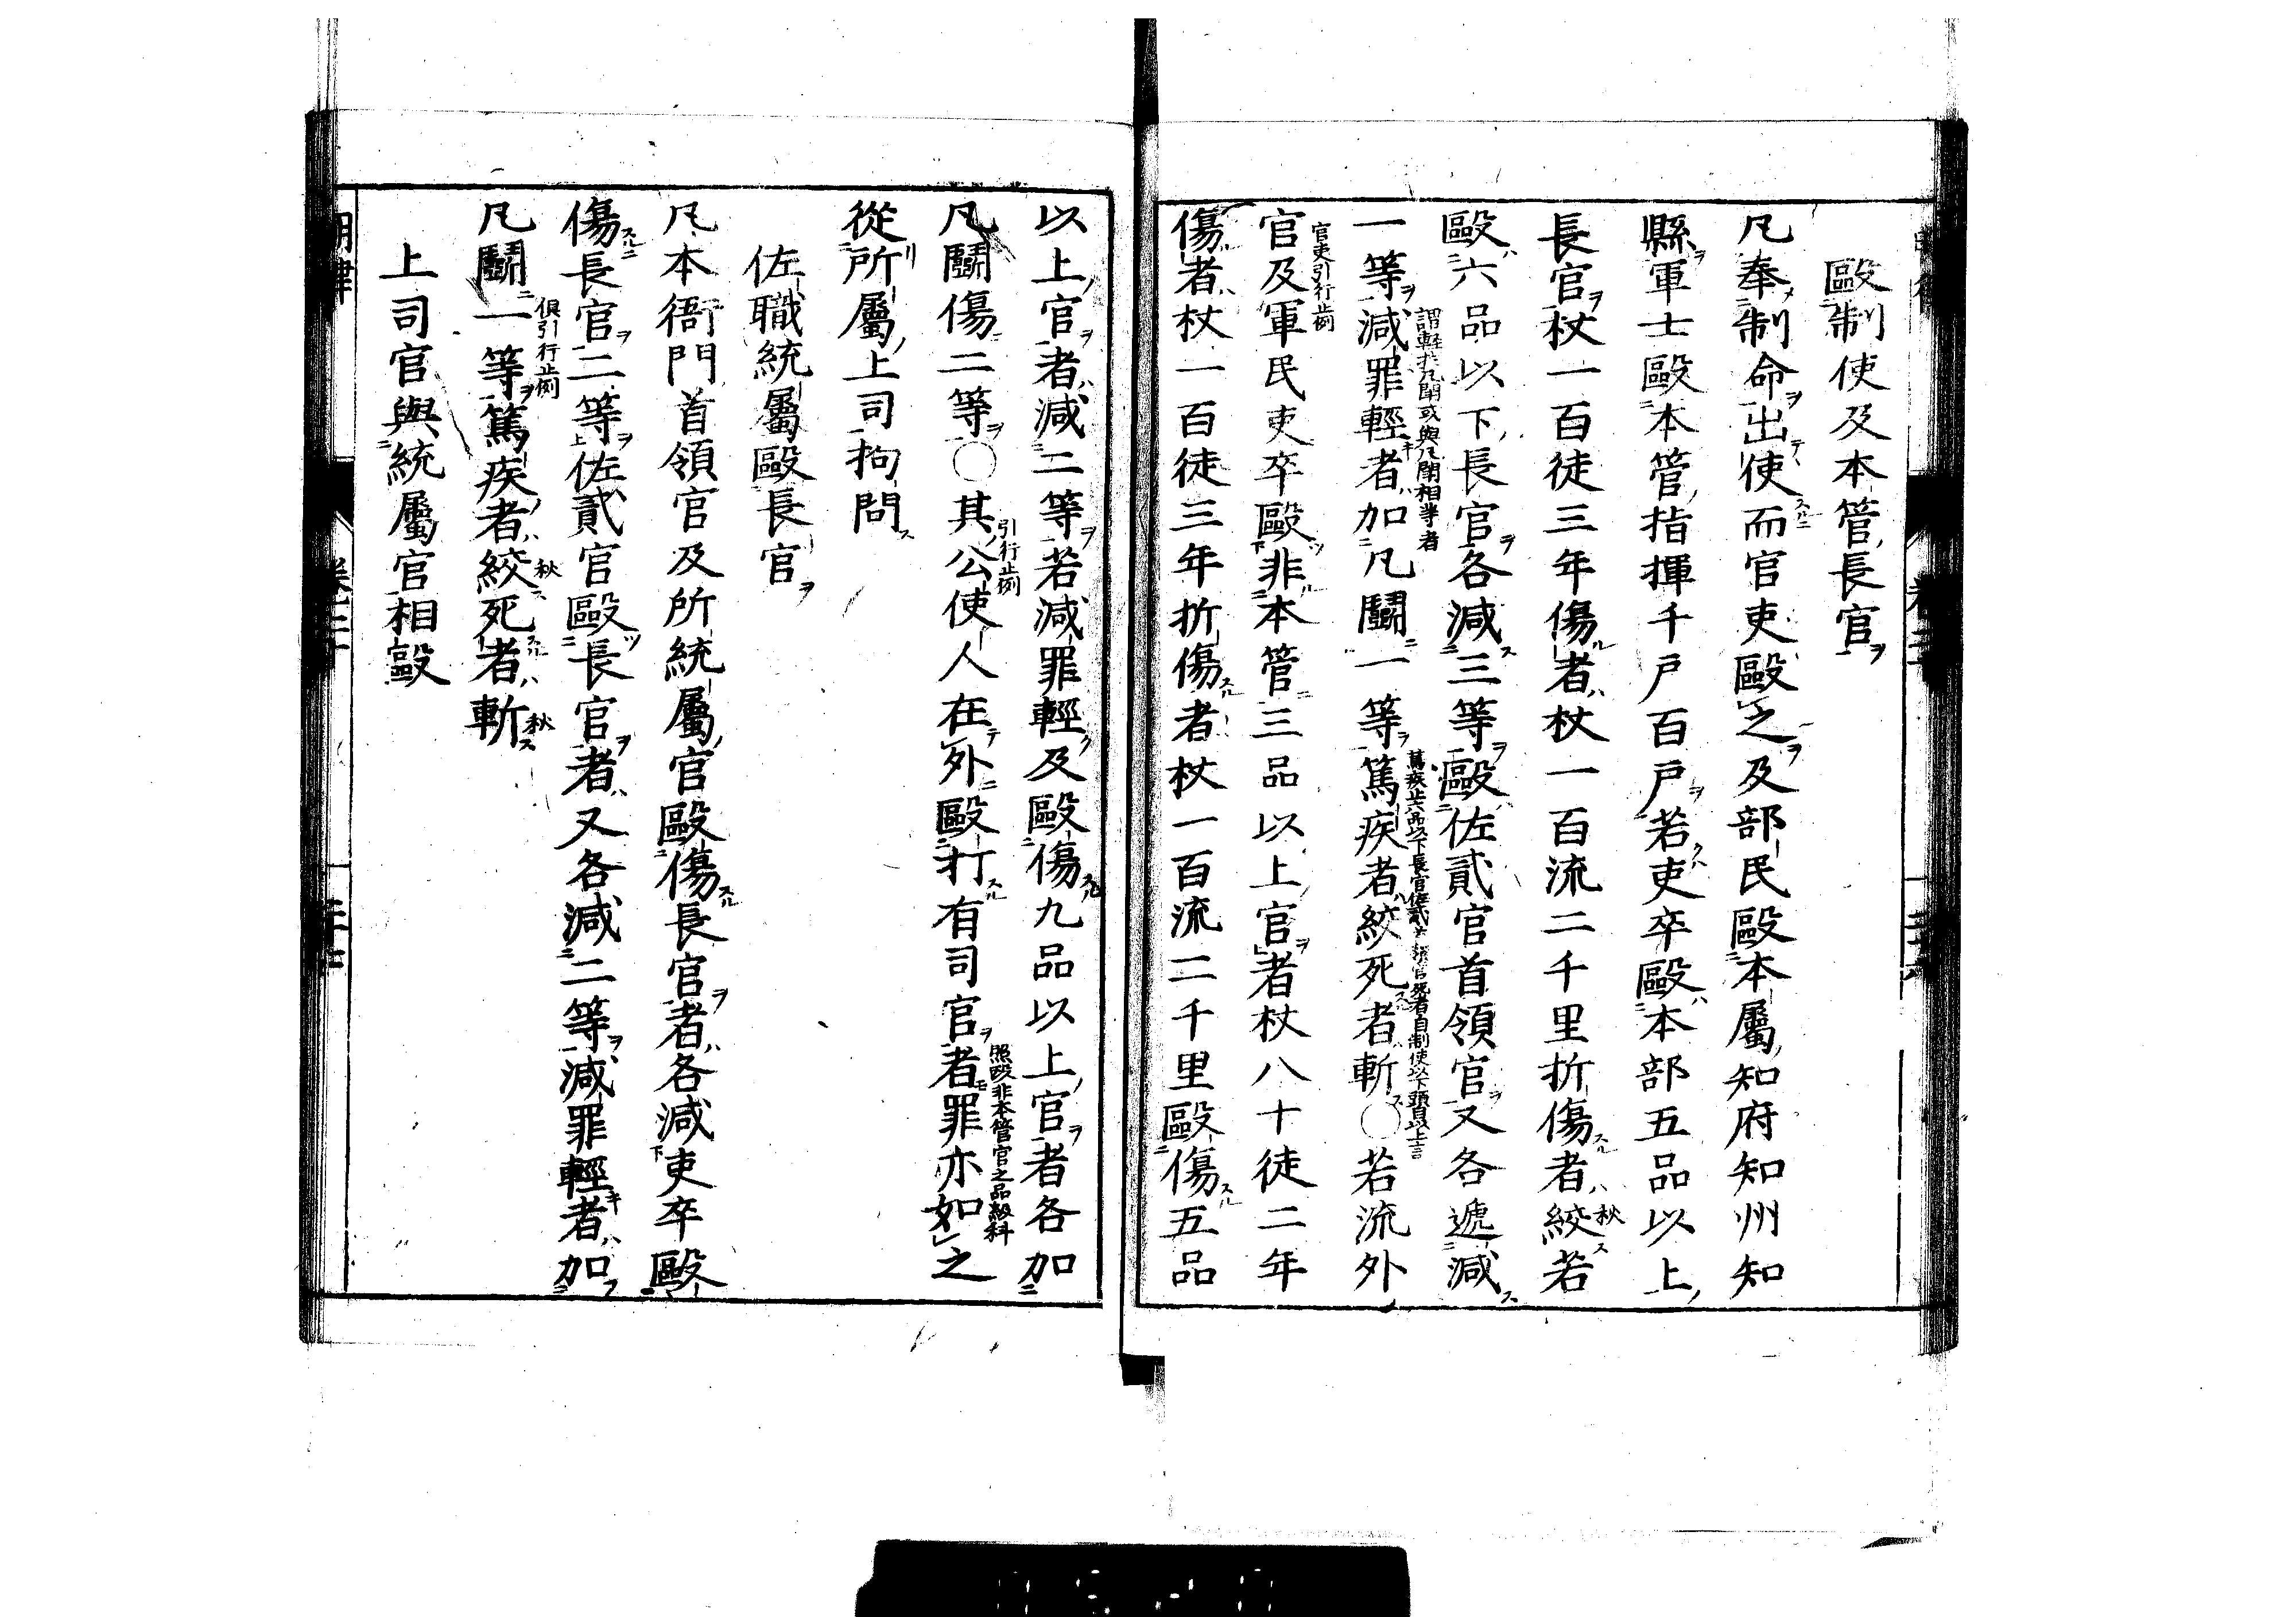 毆制使及本管長官
凡奉制命出使而官吏毆之及部民毆本屬知府知州知
縣軍士毆本管指揮千戶百戶若吏卒毆本部五品以上
長官杖一百徒三年傷者杖一百流二千里折傷者絞若
秋
毆六品以下長官各減三等毆佐貳官首領官又各遞減
謂輕於凡鬪或與凡鬪相等者
一等減罪輕者加凡鬪一等篤疾者絞死者斬○若流外
官吏引行止例
官及軍民吏卒毆非本管三品以上官者杖八十徒二年
傷者杖一百徒三年折傷者杖一百流二千里毆傷五品
以上官者減二等若減罪輕及毆傷九品以上官者各加
引行止例
照毆非本管官之品級科
凡鬪傷二等○其公使人在外毆打有司官者罪亦如之
從所屬上司拘問
佐職統屬毆長官
凡本衙門首領官及所統屬官毆傷長官者各減吏卒毆
傷長官二等佐貳官毆長官者又各減二等減罪輕者加
俱引行止例
秋
秋
凡鬪一等篤疾者絞死者斬
上司官與統屬官相毆